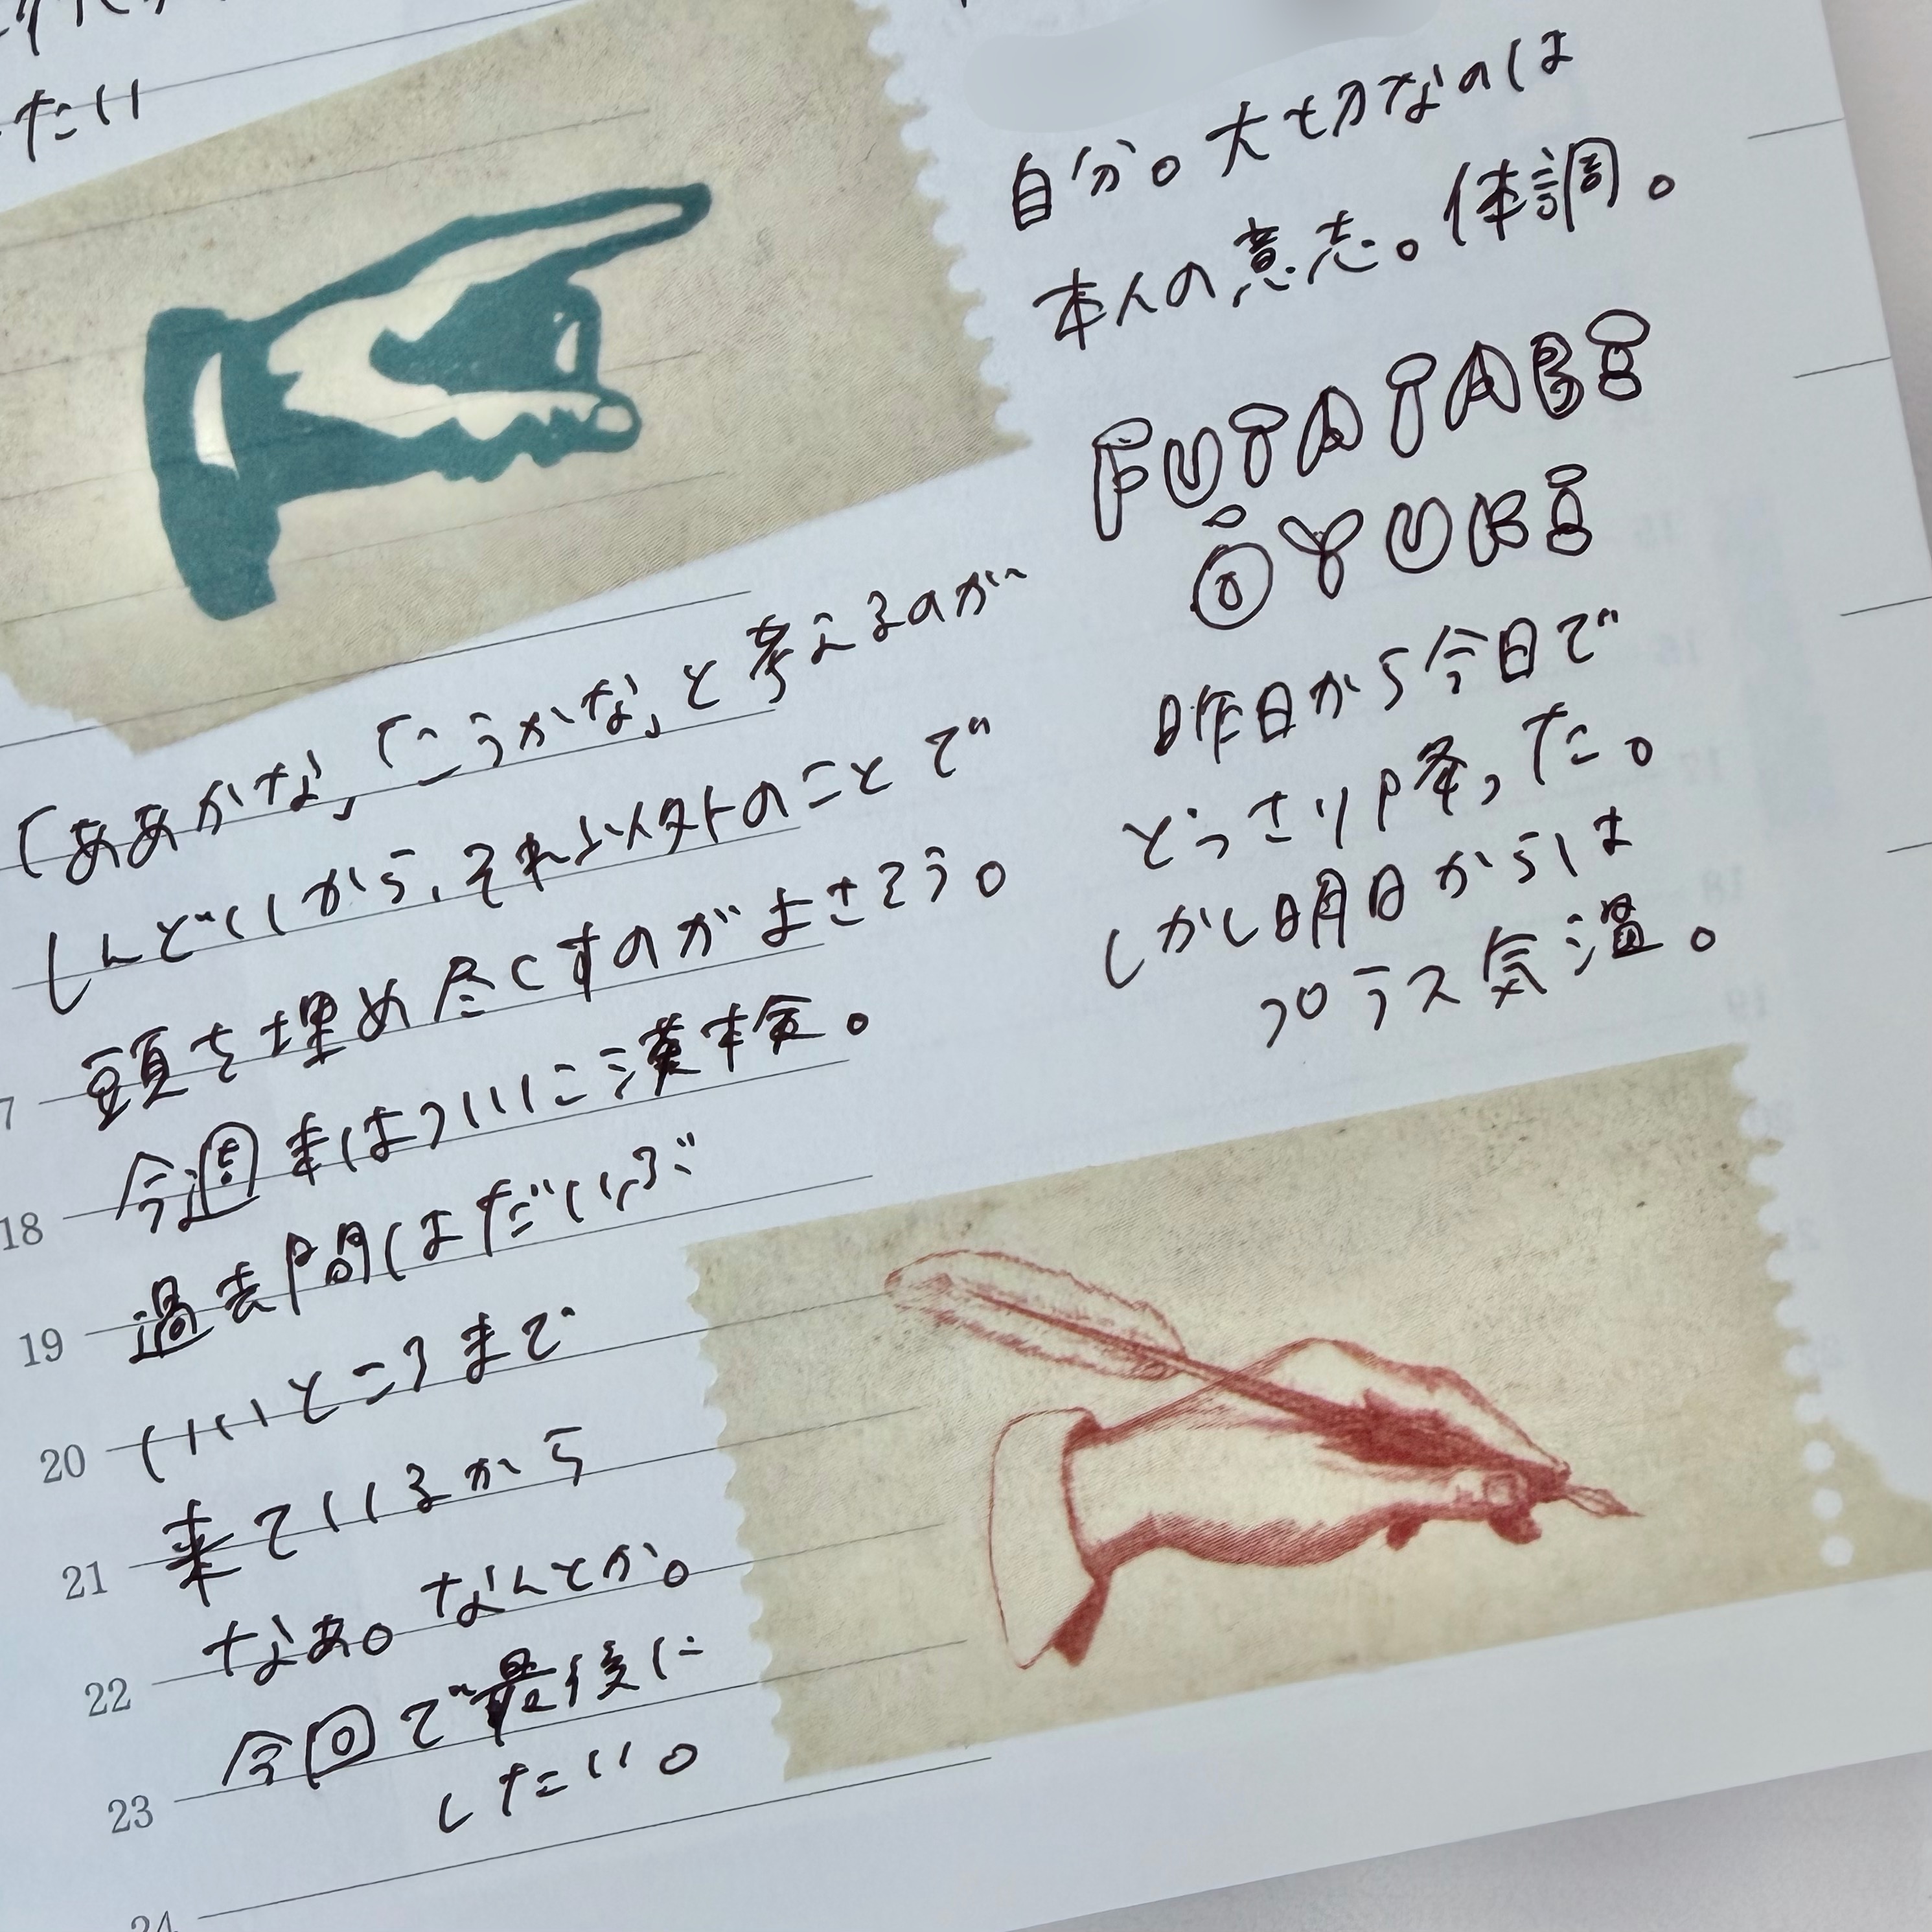 たい
「ああかな」「こうかな」と考えるのが
しんどいから、それ以外のことで
頭を埋め尽くすのがよさそう。
今週末はついに漢検。
過去問はだいぶ
いいところまで
来ているから
なあ。なんとか。
今回で最後に
したい。
7
18
19
20
21
22
23
24
自分。大切なのは
本人の意志。体調。
FUTATABI
ŌYUKI
昨日から今日で
どっさり降った。
しかし明日からは
プラス気温。